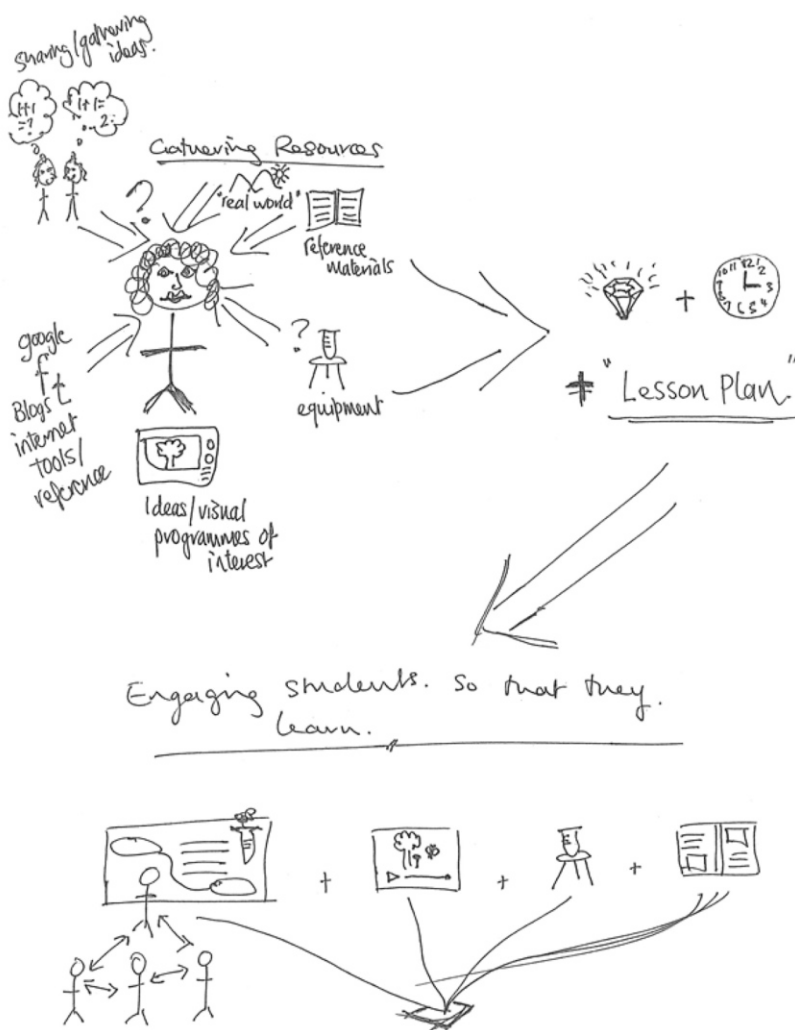 sharing/gathering
ideas.
1+1
=?
1+1=
2:
Gathering Resources
?
"real world"
reference
materials
google
f t
Blogs
internet
tools/
reference
?
equipment
Ideas/visual
programmes of
interest
+
10 11 12 1 2 3 4 5 6 7 8 9
+ "Lesson Plan."
Engaging students. So that they.
learn.
+ + +